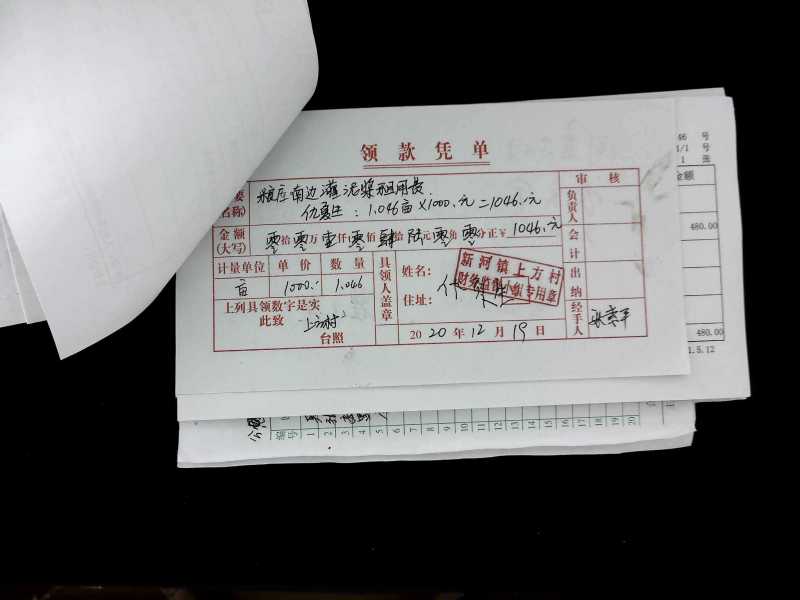 领款凭单
要 粮库南边灌泥浆租用费. 审核
名称) 仇 : 1.046亩×1000.元=1046.元 负责人
金额(大写) 零拾零万壹仟零佰肆拾陆元零角零分正¥ 1046.元 会计
计量单位 单价 数量 具领人盖章 姓名: 新河镇上方村
亩 1000.- 1.046 住址: 财务监督小组专用章 出纳
上列具领数字是实
此致 上方村 经手人
台照 2020年12月19日
46 号
1/1 号
1 张
金额
480.00
480.00
1.5.12
编号 1 2 3 4 5 6 7 8 9 10 11 12 13 14 15 16 17 18 19 20